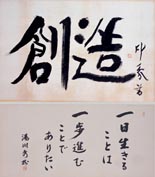 創造
一日生きる
ことは
一歩進む
ことで
ありたい
湯川秀樹